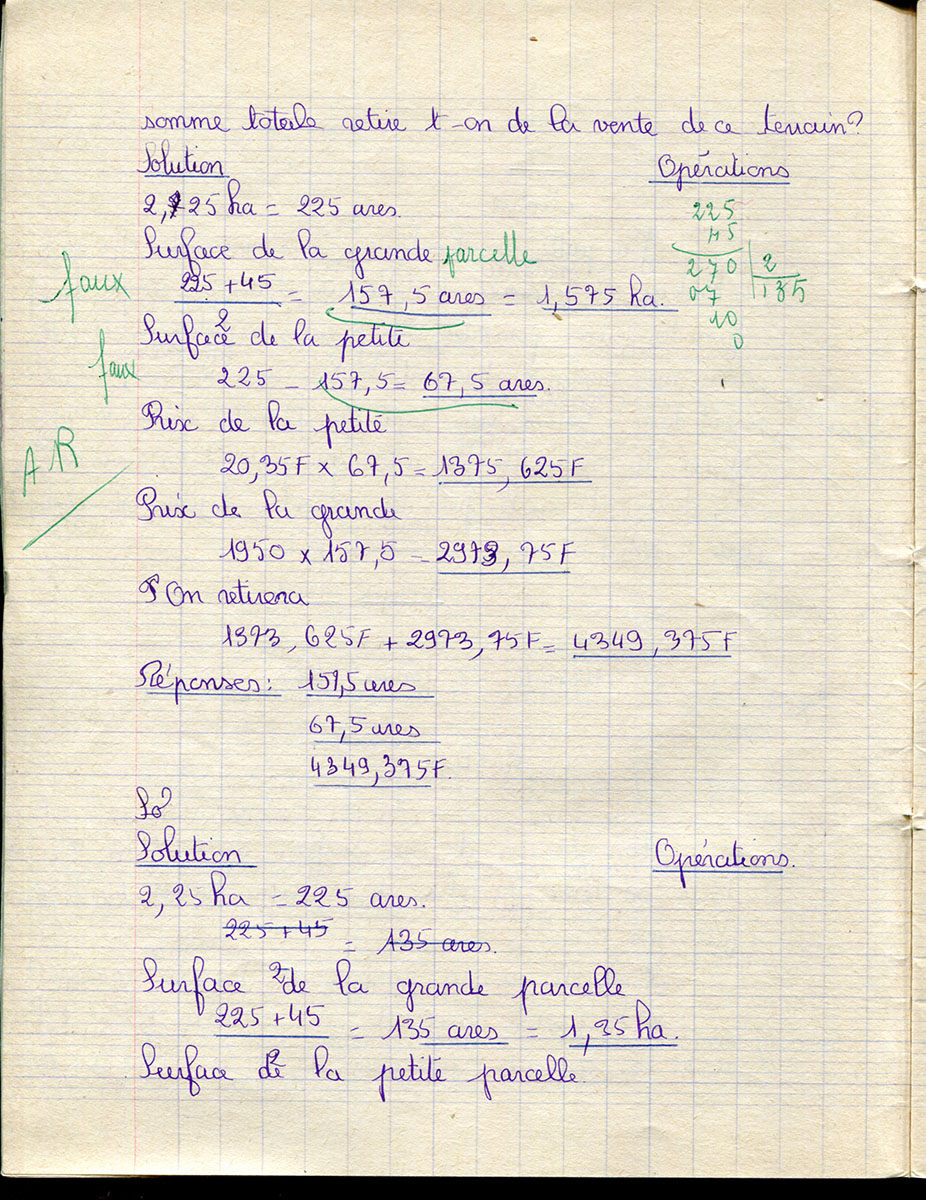 somme totale retire t-on de la vente de ce terrain?
Solution
Opérations
2,25 ha = 225 ares.
225
45
270 2
07 135
10
0
Surface de la grande parcelle
faux
225 + 45 = 157,5 ares = 1,575 ha.
2
Surface de la petite
faux
225 - 157,5 = 67,5 ares.
Prix de la petite
20,35F x 67,5 = 1375,625F
AR
Prix de la grande
1950 x 157,5 = 2973,75F
On retirera
1373,625F + 2973,75F = 4349,375F
Réponses: 157,5 ares
67,5 ares
4349,375F.
So
Solution
Opérations.
2,25 ha = 225 ares.
225 + 45 = 135 ares.
2
Surface de la grande parcelle
225 + 45 = 135 ares = 1,35 ha.
2
Surface de la petite parcelle